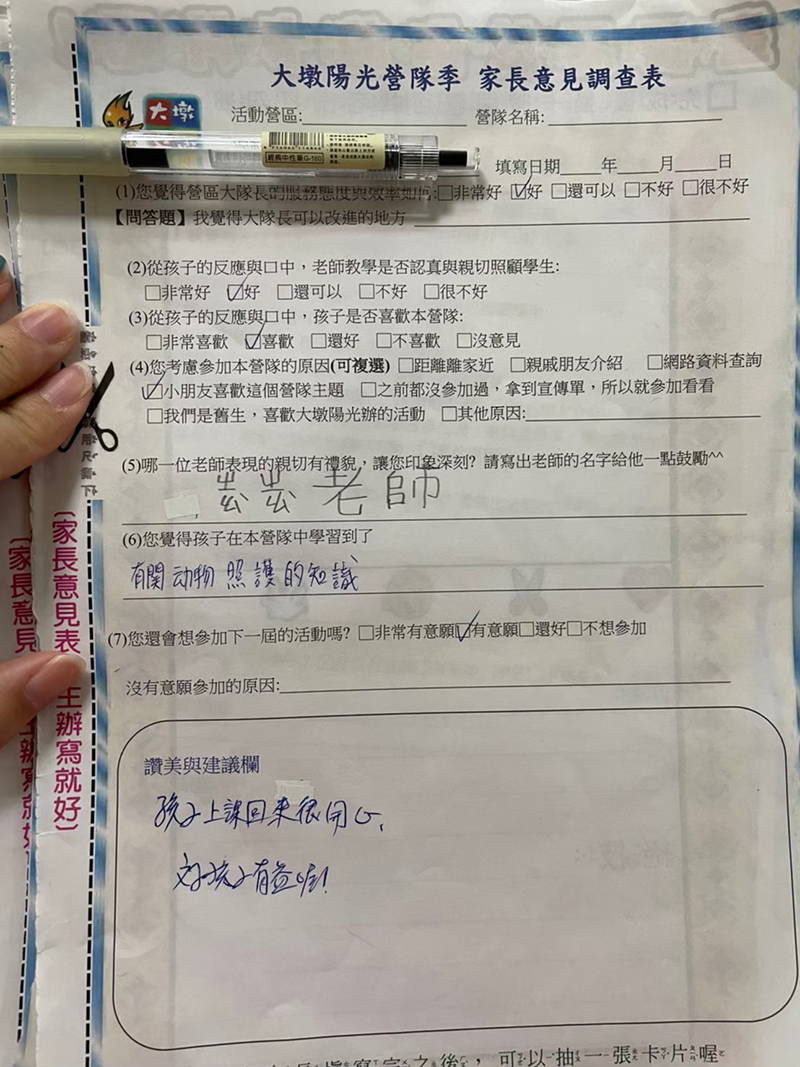 大墩陽光營隊季 家長意見調查表
大墩
活動營區:________ 營隊名稱:________
填寫日期____年____月____日
(1)您覺得營區大隊長的服務態度與效率如何:□非常好 ☑好 □還可以 □不好 □很不好
【問答題】我覺得大隊長可以改進的地方________
(2)從孩子的反應與口中，老師教學是否認真與親切照顧學生:
□非常好 ☑好 □還可以 □不好 □很不好
(3)從孩子的反應與口中，孩子是否喜歡本營隊:
□非常喜歡 ☑喜歡 □還好 □不喜歡 □沒意見
(4)您考慮參加本營隊的原因(可複選) □距離離家近 □親戚朋友介紹 □網路資料查詢
☑小朋友喜歡這個營隊主題 □之前都沒參加過，拿到宣傳單，所以就參加看看
□我們是舊生，喜歡大墩陽光辦的活動 □其他原因:________
(5)哪一位老師表現的親切有禮貌，讓您印象深刻? 請寫出老師的名字給他一點鼓勵^^
老師
(6)您覺得孩子在本營隊中學習到了
有関动物照護的知識
(7)您還會想參加下一屆的活動嗎? □非常有意願☑有意願□還好□不想參加
沒有意願參加的原因:________
讚美與建議欄
孩子上課回來很開心,
対孩子有益哦!
(家長意見表
主辦寫就好)
(家長意見
寫完之後，可以抽一張卡片喔